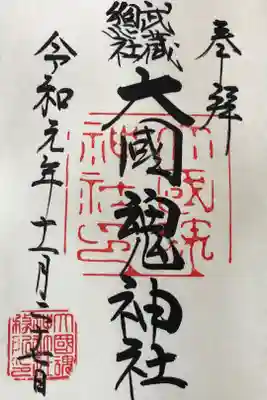 奉拝
武蔵
總社
大國魂神社
令和元年十一月二十七日
大國魂
神社印